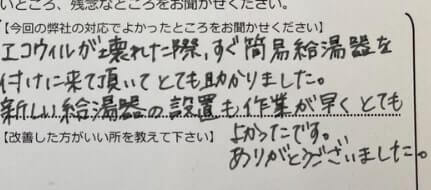 いところ、残念なところをお聞かせください。
【今回の弊社の対応でよかったところをお聞かせください】
エコウィルが壊れた際、すぐ簡易給湯器を
付けに来て頂いてとても助かりました。
新しい給湯器の設置も作業が早くとても
よかったです。
ありがとうございました。
【改善した方がいい所を教えて下さい】